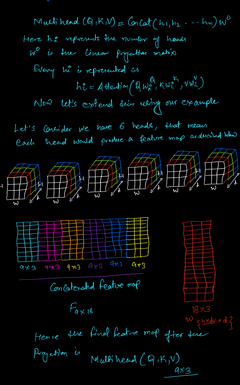 Multihead (Q,K,V) = Concat (h1, h2 ... hn) W^0
Here hi represents the number of heads
W^0 is the linear projection matrix
Every hi is represented as
hi = Attention (QWi^Q, KWi^K, VWi^V)
Now let's extend this using our example
Let's Consider we have 6 heads, that means
Each head would produce a feature map as derived
W W W W W W
9x3 9x3 9x3 9x3 9x3 9x3
Concatenated feature map
F 9x18
18x3
W
Hence the final feature map after the
Projection is
Multihead (Q,K,V)
9x3